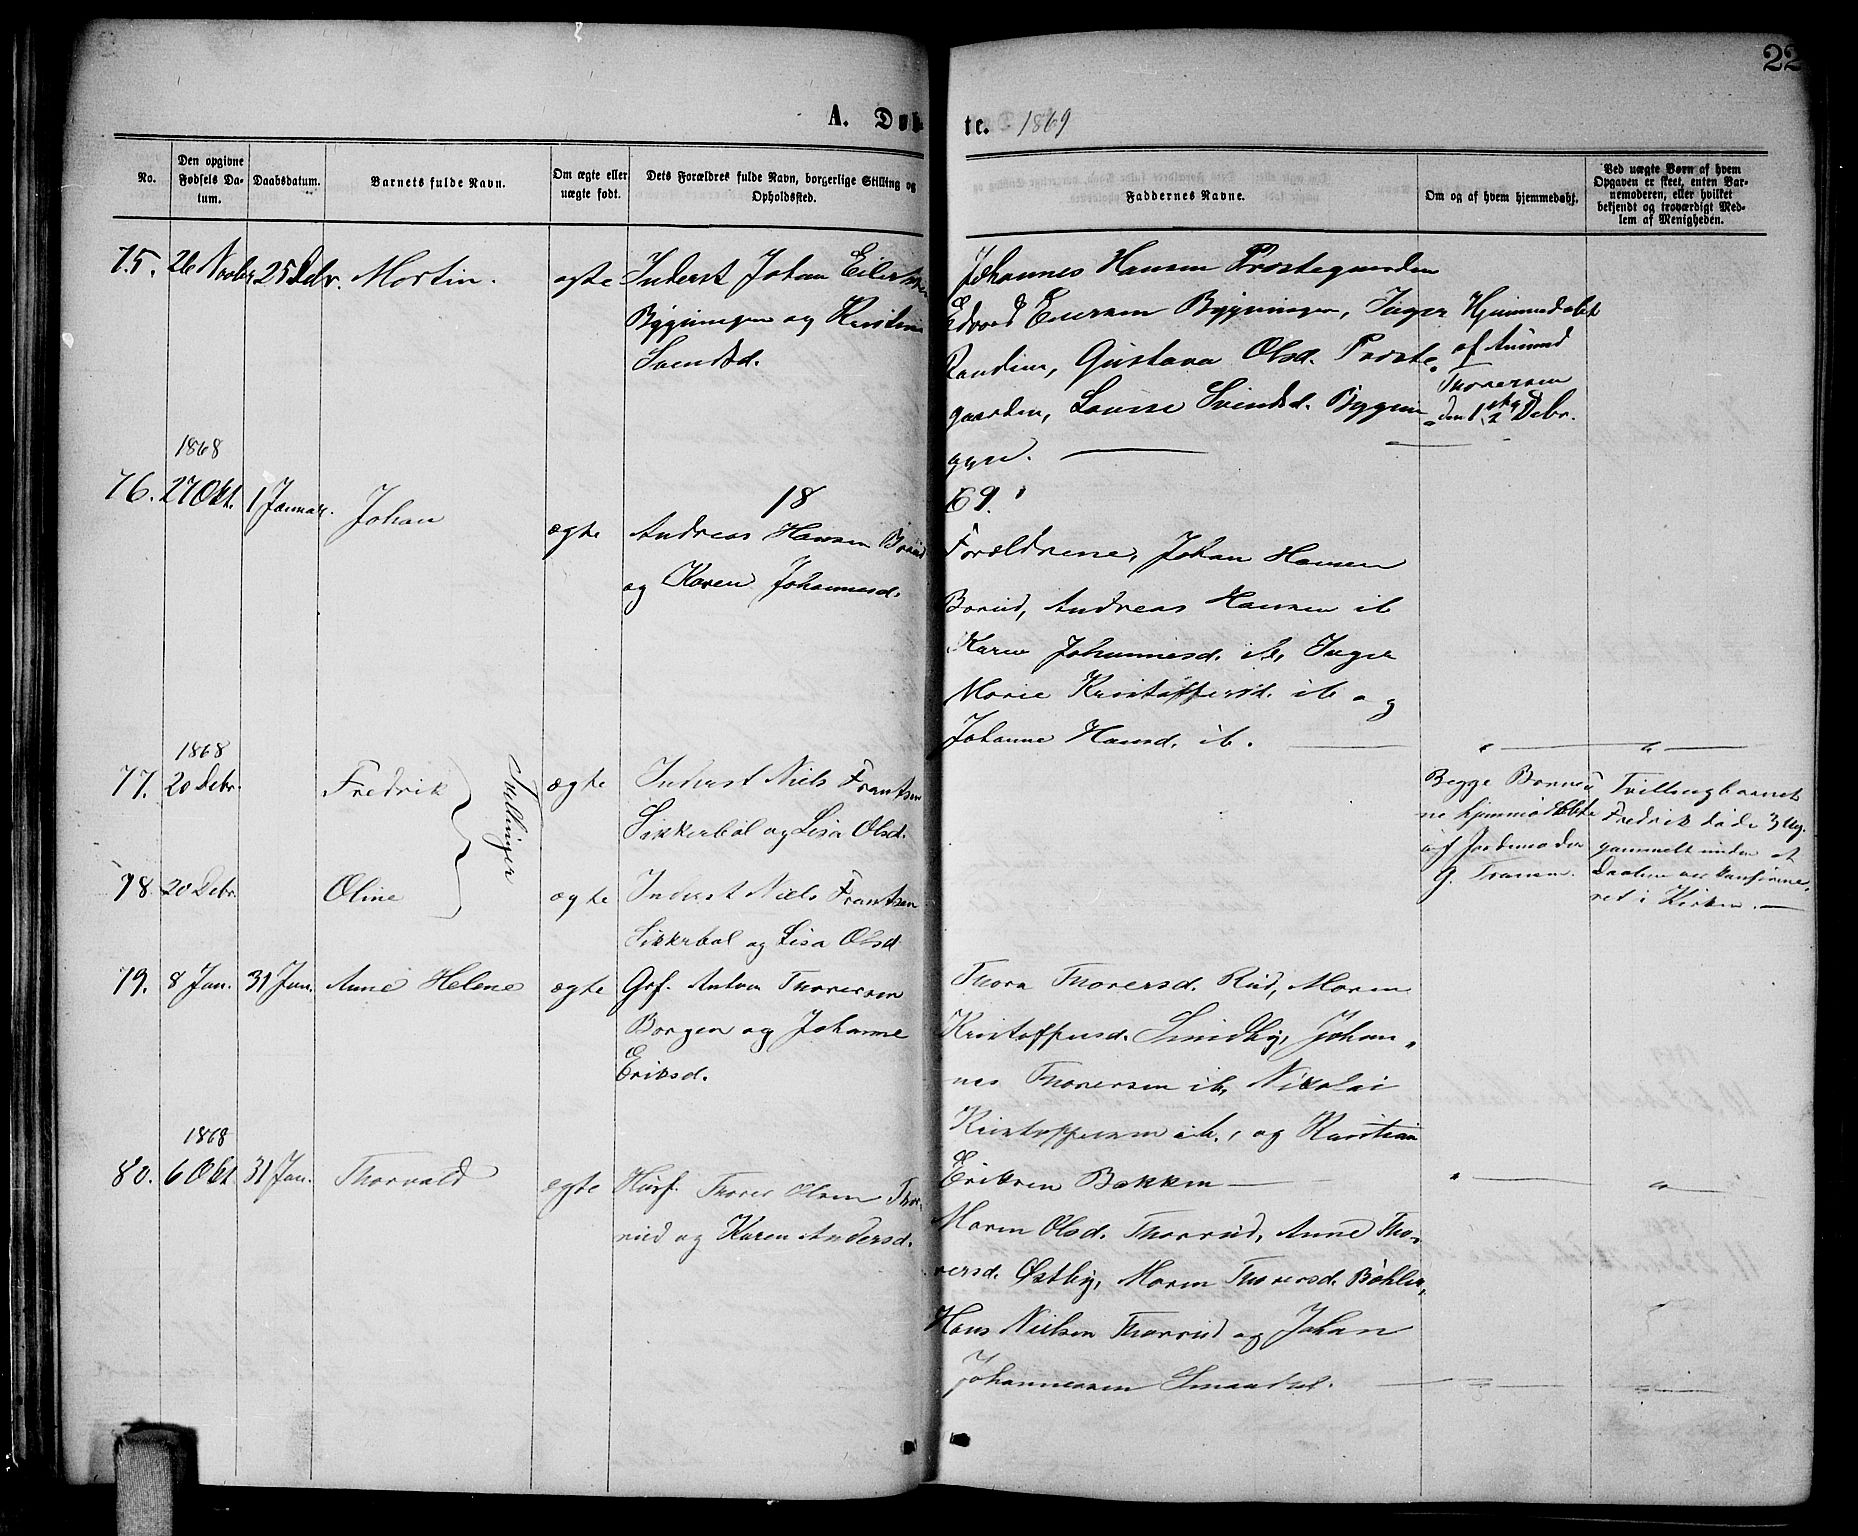 22
A. Døb- te. 1869
No.
Den opgivne Fødsels Da-tum.
Daabsdatum.
Barnets fulde Navn.
Om ægte eller uægte født.
Dets Forældres fulde Navn, borgerlige Stilling og Opholdssted.
Faddernes Navne.
Om og af hvem hjemmedøbt.
Ved uægte Børn af hvem Opgaven er skeet, enten Bar-nemoderen, eller hvilket bekjendt og troværdigt Med-lem af Menigheden.
75. 26 Novbr 25 Debr. Martin. ægte
Inderst Johan Eilertsen
Bygningen og Kristine
Svendsd.
Johannes Hansen Prestegaarden
Edvard Eversen Bygningen, Inger
Randine, Gustava Olsd. Preste-
gaarden, Louise Svendsd. Bygnin-
gen.
Hjemmedøbt
af Amund
Thoresen
den 1 Debr.
18 69.
1868
76. 27 Okt. 1 Januar. Johan ægte
Andreas Hansen Borud
og Karen Johannesd.
Forældrene, Johan Hansen
Borud, Andreas Hansen ib
Karen Johannesd. ib, Inger
Marie Kristoffersd. ib og
Johanne Hansd. ib.
1868
77. 20 Debr. Fredrik ægte
Inderst Niels Frantsen
Sikkerbøl og Lisa Olsd.
Tvillinger
78. 20 Debr. Oline ægte
Inderst Niels Frantsen
Sikkerbøl og Lisa Olsd
Begge Børne-
ne hjemmedøbte
af Jordemoder
G. Transen.
Tvillingbarnet
Fredrik døde 3 Ug.
gammelt uden at
Daaben var konfirme-
ret i Kirken.
79. 8 Jan. 31 Jan. Anne Helene ægte
Grf. Anton Thoresen
Borgen og Johanne
Eriksd.
Thora Thoresd. Rud, Maren
Kristoffersd. Sundby, Johan-
nes Thoresen ib, Nikolai
Kristoffersen ib., og Kristian
Eriksen Bakken
1868
80. 6 Okt 31 Jan. Thorvald ægte
Husf. Thore Olsen Thor-
rud og Karen Andersd.
Maren Olsd. Thorrud, Anne Tho-
resd. Østby, Maren Thoresd. Bøhler,
Hans Nielsen Thorrud og Johan
Johannessen